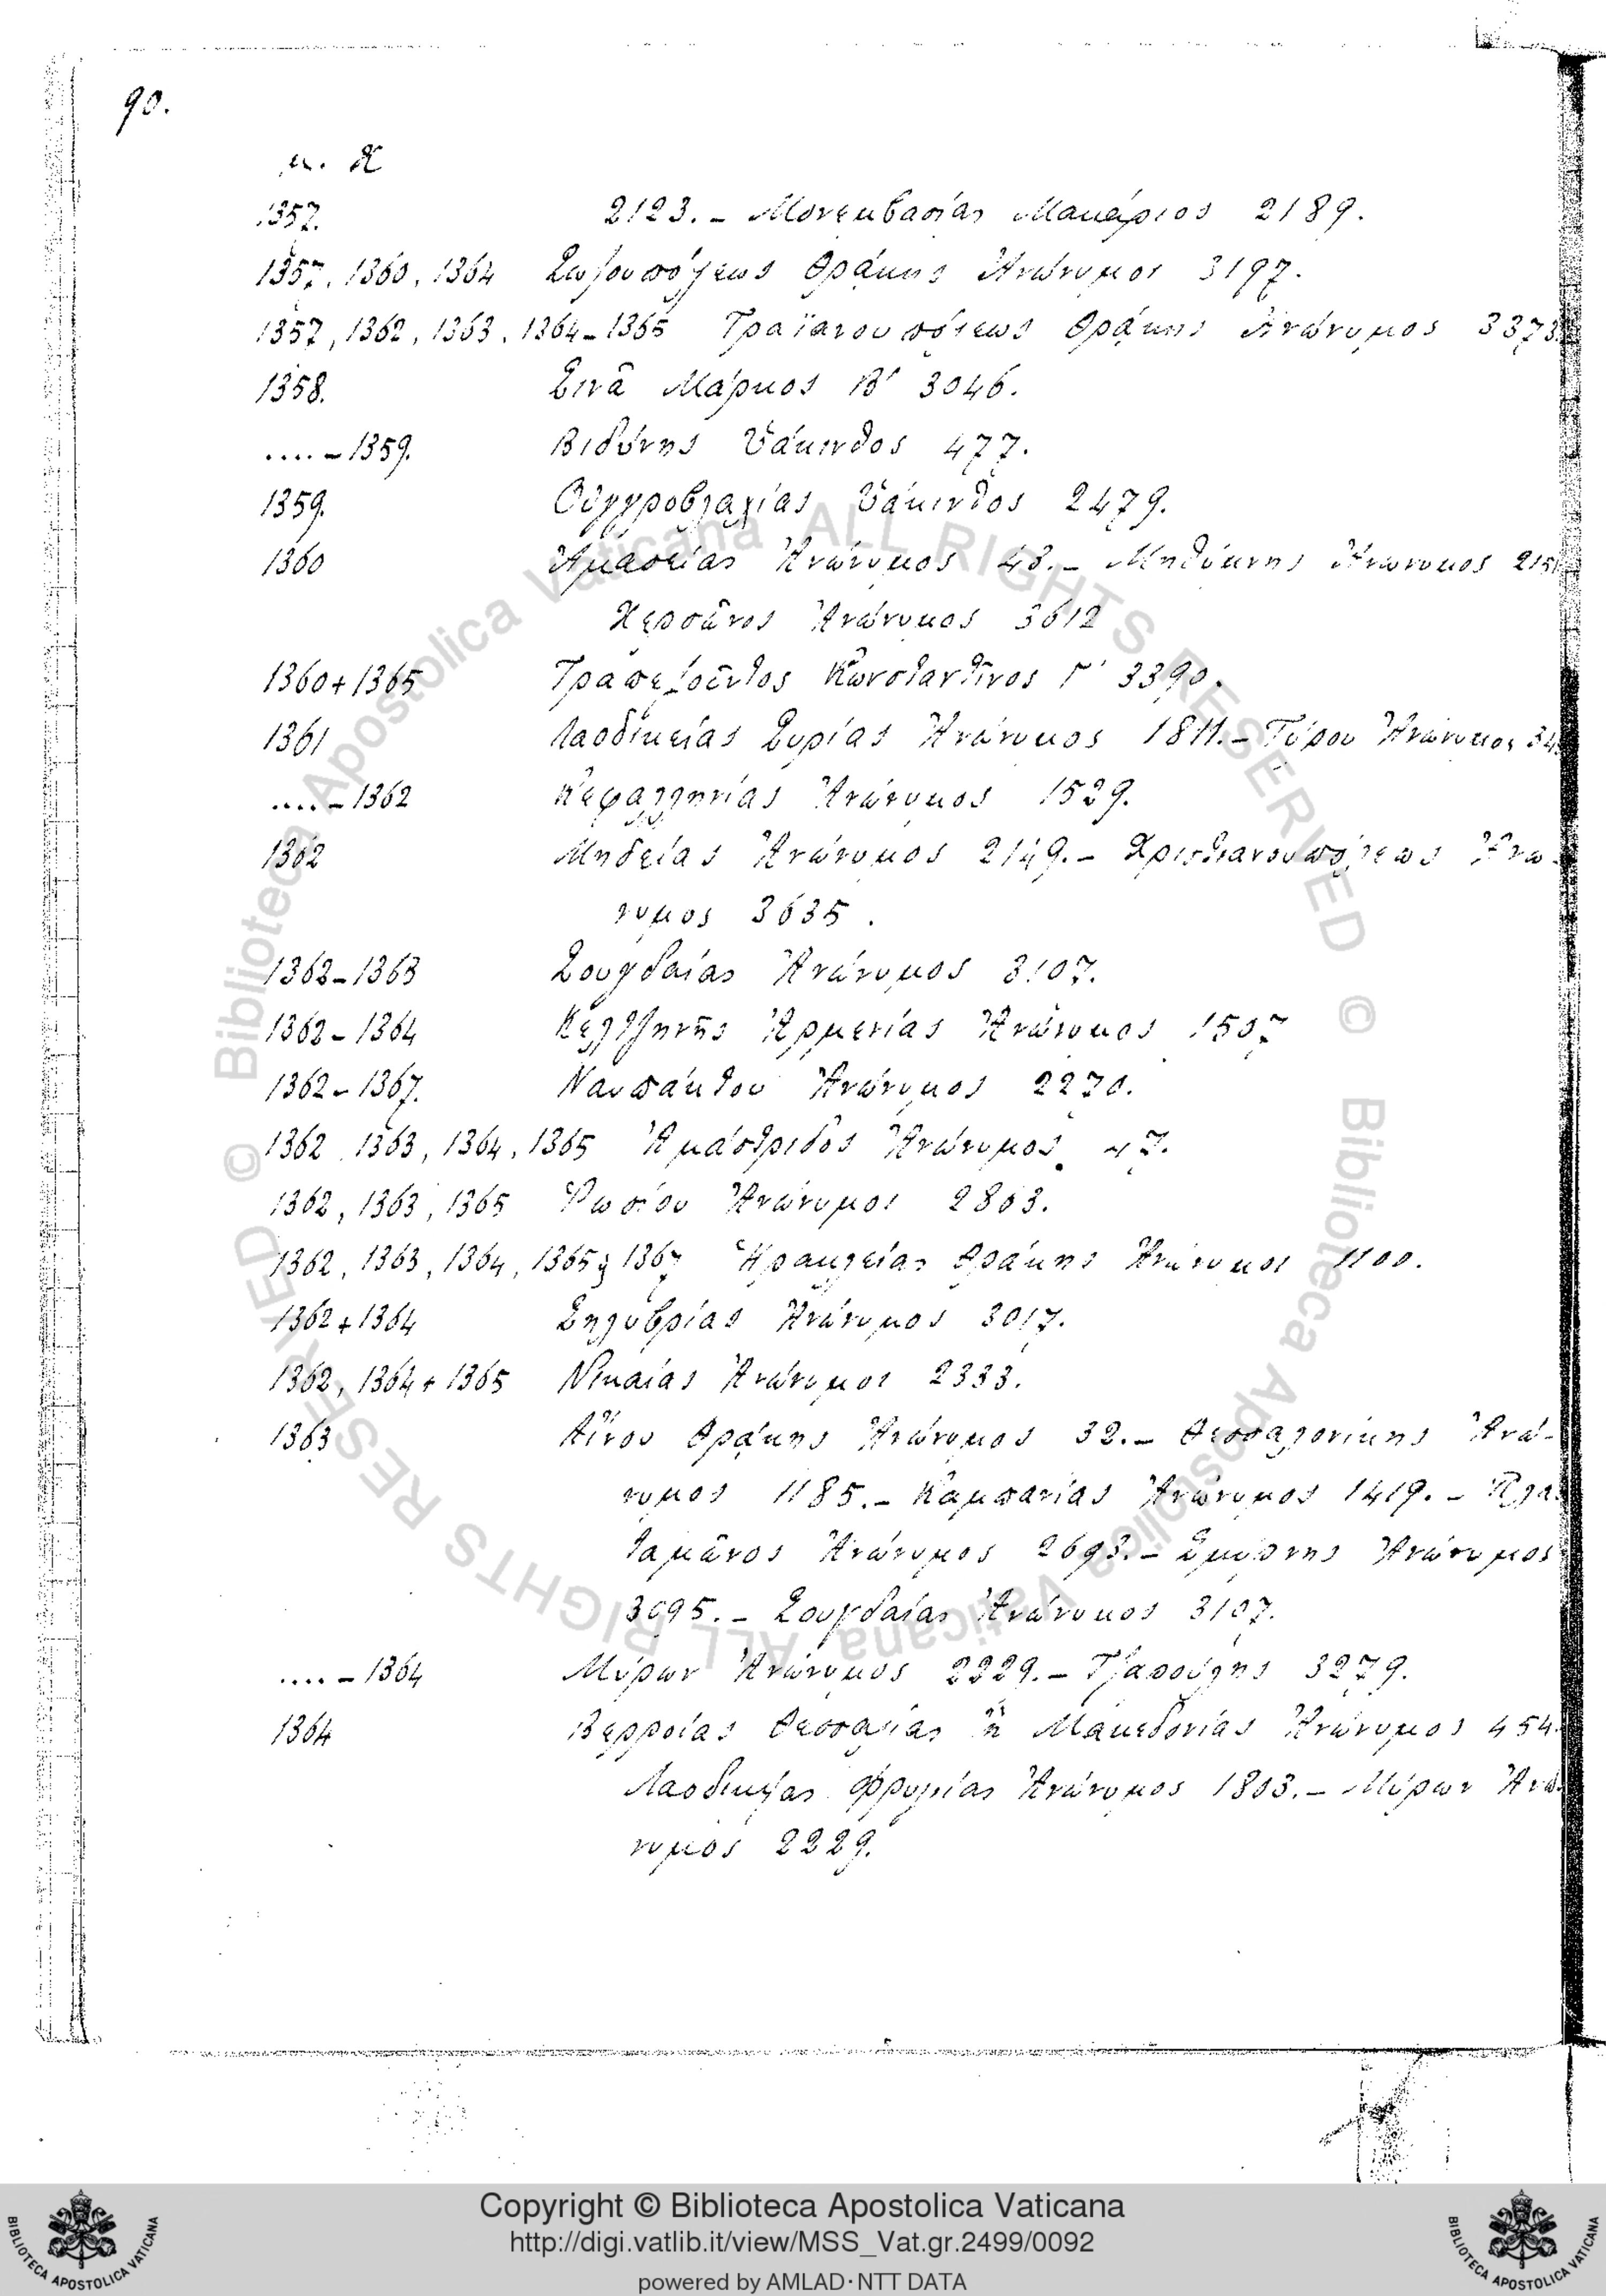 90.
μ. Χ
1357. 2123. – Μονεμβασίας Μακάριος 2189.
1357, 1360, 1364 Σωζουπόλεως Θράκης Ἀνώνυμος 3197.
1357, 1362, 1363, 1364–1365 Τραϊανουπόλεως Θράκης Ἀνώνυμος 3373.
1358. Σινᾶ Μάρκος Β' 3046.
.... – 1359. Βιδύνης Ὑάκινθος 477.
1359. Οὑγγροβλαχίας Ὑάκινθος 2479.
1360 Ἀμασείας Ἀνώνυμος 43. – Μηθύμνης Ἀνώνυμος
Χερσῶνος Ἀνώνυμος 3612
1360 + 1365 Τραπεζοῦντος Κωνσταντῖνος Γ' 3390.
1361 Λαοδικείας Συρίας Ἀνώνυμος 1811. – Τύρου Ἀνώνυμος
.... – 1362 Κεφαλληνίας Ἀνώνυμος 1529.
1362 Μηδείας Ἀνώνυμος 2149. – Χριστιανουπόλεως Ἀνώ-
νυμος 3635.
1362–1363 Σουγδαίας Ἀνώνυμος 3107.
1362–1364 Κελτζηνῆς Ἀρμενίας Ἀνώνυμος 1507
1362–1367. Ναυπάκτου Ἀνώνυμος 2270.
1362, 1363, 1364, 1365 Ἀμάστριδος Ἀνώνυμος 47.
1362, 1363, 1365 Ῥωσίου Ἀνώνυμος 2863.
1362, 1363, 1364, 1365, 1367 Ἡρακλείας Θράκης Ἀνώνυμος 1100.
1362 + 1364 Σηλυβρίας Ἀνώνυμος 3017.
1362, 1364 + 1365 Νικαίας Ἀνώνυμος 2333.
1363 Αἴνου Θράκης Ἀνώνυμος 32. – Θεσσαλονίκης Ἀνώ-
νυμος 1185. – Καμπανίας Ἀνώνυμος 1419. – Πλα-
ταμῶνος Ἀνώνυμος 2693. – Σμύρνης Ἀνώνυμος
3095. – Σουγδαίας Ἀνώνυμος 3107.
.... – 1364 Μύρων Ἀνώνυμος 2229. – Τζαπούλης 3279.
1364 Βερροίας Θεσσαλίας ἢ Μακεδονίας Ἀνώνυμος 454.
Λαοδικείας Φρυγίας Ἀνώνυμος 1803. – Μύρων Ἀνώ-
νυμος 2229.
© Biblioteca Apostolica Vaticana ALL RIGHTS RESERVED
© Biblioteca Apostolica Vaticana ALL RIGHTS RESERVED
Copyright © Biblioteca Apostolica Vaticana
http://digi.vatlib.it/view/MSS_Vat.gr.2499/0092
powered by AMLAD·NTT DATA
BIBLIOTECA APOSTOLICA VATICANA
BIBLIOTECA APOSTOLICA VATICANA